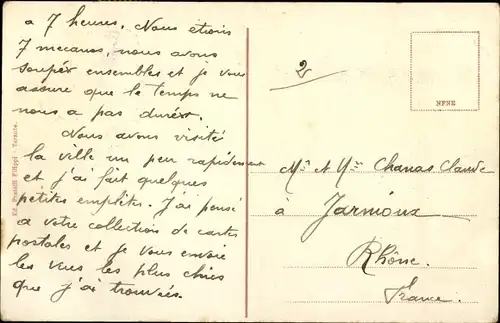 à 7 heures. Nous étions
7 mecanos, nous avons
soupér ensembles et je vous
assure que le temps ne
nous a pas durér.
Nous avons visité
la ville un peu rapidement
et j'ai fait quelques
petites emplètes. J'ai pensé
à votre collection de cartes
postales et je vous envoie
les vues les plus chics
que j'ai trouvées.
Ed. Fratelli Filippi - Ternate.
2
NPNE
Mr et Mme Chanas Claude
à Jarnioux
Rhône.
France.